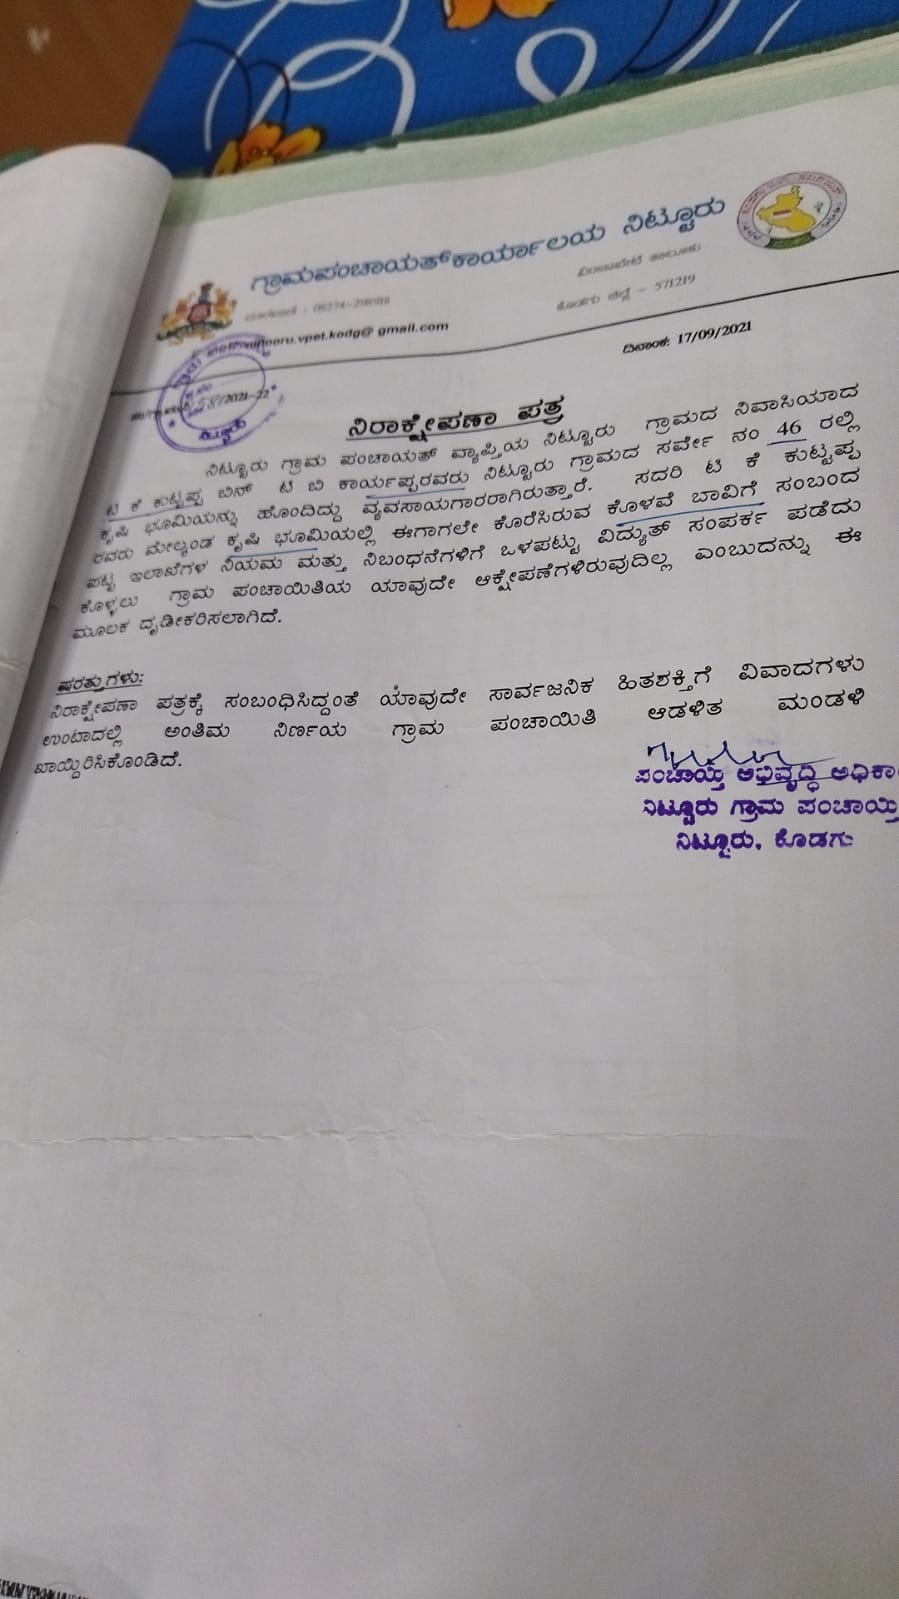 ಗ್ರಾಮಪಂಚಾಯತ್‌ಕಾರ್ಯಾಲಯ ನಿಟ್ಟೂರು
ವಿರಾಜಪೇಟೆ ತಾಲೂಕು
ದೂರವಾಣಿ : 08274-298918
ಕೊಡಗು ಜಿಲ್ಲೆ – 571219
nittooru.vpet.kodg@ gmail.com
ದಿನಾಂಕ: 17/09/2021
58/2021-22
ನಿರಾಕ್ಷೇಪಣಾ ಪತ್ರ
ನಿಟ್ಟೂರು ಗ್ರಾಮ ಪಂಚಾಯತ್ ವ್ಯಾಪ್ತಿಯ ನಿಟ್ಟೂರು ಗ್ರಾಮದ ನಿವಾಸಿಯಾದ
ಟಿ ಕೆ ಕುಟ್ಟಪ್ಪ ಬಿನ್ ಟಿ ಬಿ ಕಾರ್ಯಪ್ಪರವರು ನಿಟ್ಟೂರು ಗ್ರಾಮದ ಸರ್ವೇ ನಂ 46 ರಲ್ಲಿ
ಕೃಷಿ ಭೂಮಿಯನ್ನು ಹೊಂದಿದ್ದು ವ್ಯವಸಾಯಗಾರರಾಗಿರುತ್ತಾರೆ. ಸದರಿ ಟಿ ಕೆ ಕುಟ್ಟಪ್ಪ
ರವರು ಮೇಲ್ಕಂಡ ಕೃಷಿ ಭೂಮಿಯಲ್ಲಿ ಈಗಾಗಲೇ ಕೊರೆಸಿರುವ ಕೊಳವೆ ಬಾವಿಗೆ ಸಂಬಂದ
ಪಟ್ಟ ಇಲಾಖೆಗಳ ನಿಯಮ ಮತ್ತು ನಿಬಂಧನೆಗಳಿಗೆ ಒಳಪಟ್ಟು ವಿದ್ಯುತ್ ಸಂಪರ್ಕ ಪಡೆದು
ಕೊಳ್ಳಲು ಗ್ರಾಮ ಪಂಚಾಯಿತಿಯ ಯಾವುದೇ ಆಕ್ಷೇಪಣೆಗಳಿರುವುದಿಲ್ಲ ಎಂಬುದನ್ನು ಈ
ಮೂಲಕ ದೃಡೀಕರಿಸಲಾಗಿದೆ.
ಷರತ್ತುಗಳು:
ನಿರಾಕ್ಷೇಪಣಾ ಪತ್ರಕ್ಕೆ ಸಂಬಂಧಿಸಿದ್ದಂತೆ ಯಾವುದೇ ಸಾರ್ವಜನಿಕ ಹಿತಶಕ್ತಿಗೆ ವಿವಾದಗಳು
ಉಂಟಾದಲ್ಲಿ ಅಂತಿಮ ನಿರ್ಣಯ ಗ್ರಾಮ ಪಂಚಾಯಿತಿ ಆಡಳಿತ ಮಂಡಳಿ
ಖಾಯ್ದಿರಿಸಿಕೊಂಡಿದೆ.
ಪಂಚಾಯ್ತಿ ಅಭಿವೃದ್ಧಿ ಅಧಿಕಾ
ನಿಟ್ಟೂರು ಗ್ರಾಮ ಪಂಚಾಯ್ತಿ
ನಿಟ್ಟೂರು, ಕೊಡಗು